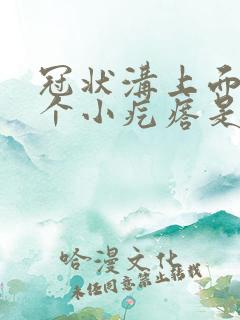 冠状溝上而
个小疙瘩是
哈漫文化
未经同意禁止转载